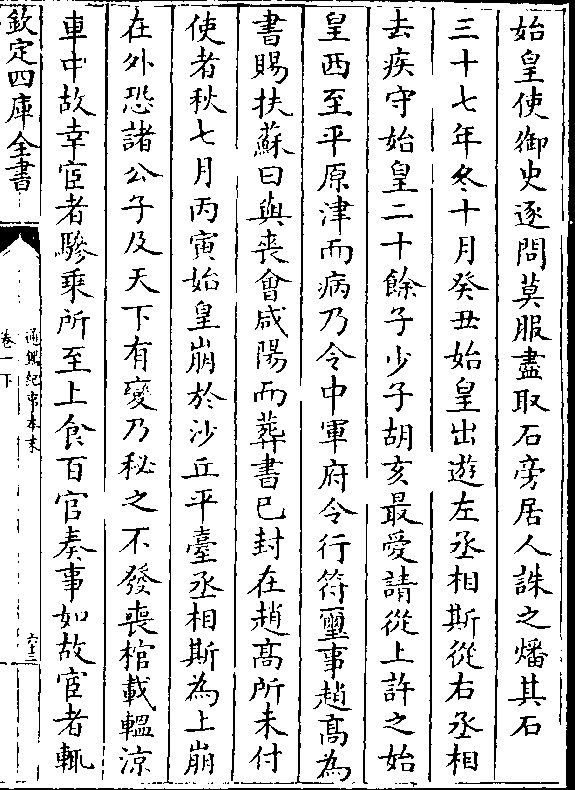 始皇使御史逐問莫服盡取石旁居人誅之燔其石
三十七年冬十月癸丑始皇出遊左丞相斯從右丞相
去疾守始皇二十餘子少子胡亥最愛請從上許之始
皇西至平原津而病乃令中軍府令行符璽事趙髙為
書賜扶蘇曰與喪會咸陽而葬書已封在趙髙所未付
使者秋七月丙寅始皇崩於沙丘平臺丞相斯為上崩
在外恐諸公子及天下有變乃秘之不發喪棺載轀涼
車中故幸宦者驂乘所至上食百官奏事如故宦者輒
欽定四庫全書
通鑑紀事本末
卷一下
六十三